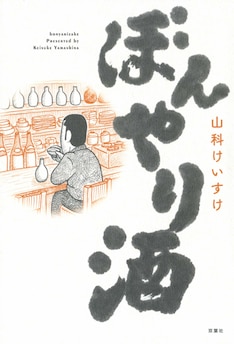 bonyarizake
Presented by
Keisuke Yamashina
ぼんやり酒
山科けいすけ
双葉社